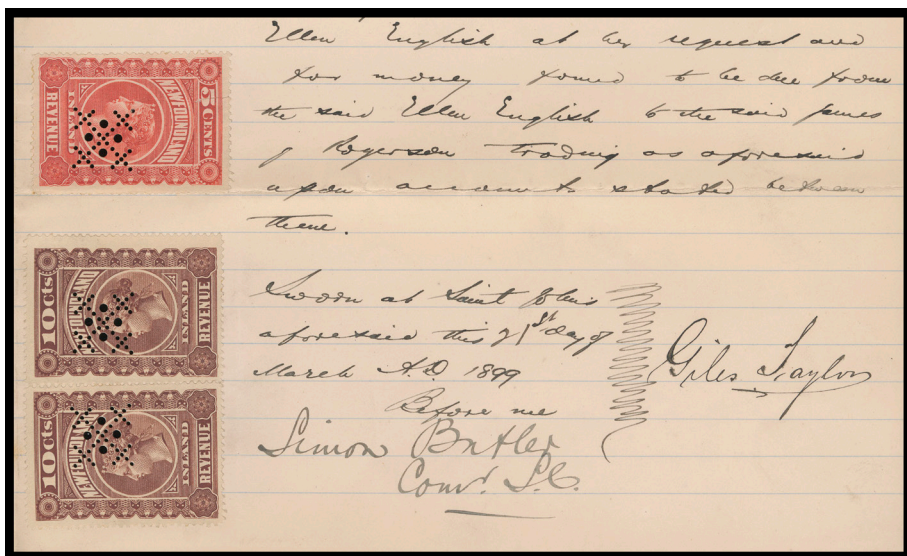 Ellen English at her request and
for money found to be due from
the said Ellen English to the said James
J Rogerson trading as aforesaid
upon accounts stated between
them.
Sworn at Saint John's
aforesaid this 21st day of
March A.D. 1899
Before me
Simon Butler
Comr. S.C.
Giles Taylor
5 CENTS
NEWFOUNDLAND
INLAND
REVENUE
10 cts
NEWFOUNDLAND
INLAND
REVENUE
10 cts
NEWFOUNDLAND
INLAND
REVENUE